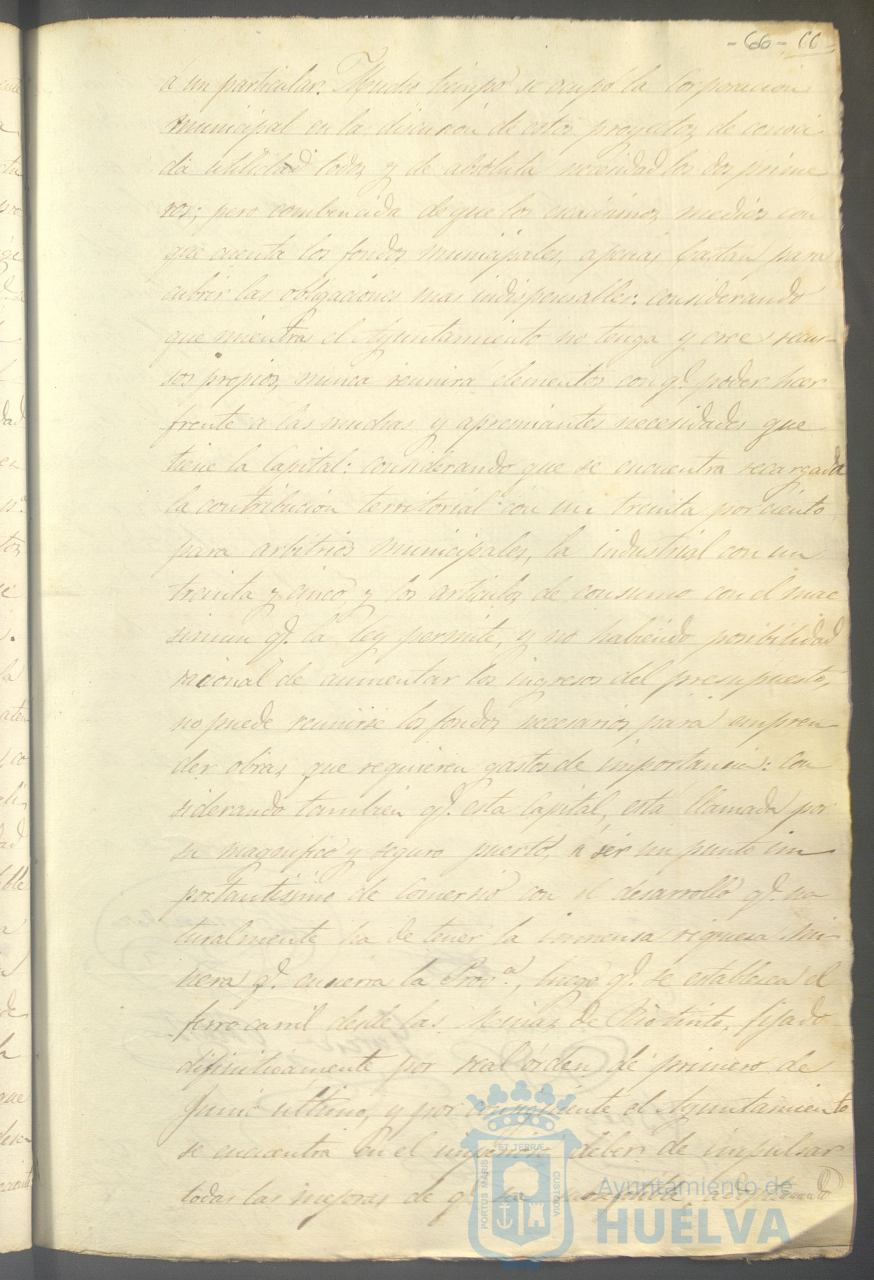 - 66 - 66 -
á un particular. Mucho tiempo se ocupó la Corporacion
municipal en la discusion de estos proyectos de conoci
da utilidad todos y de absoluta necesidad los dos prime
ros; pero combencida de que los escasisimos medios con
que cuenta los fondos municipales, apenas bastan para
cubrir las obligaciones mas indispensables: considerando
que mientras el Ayuntamiento no tenga y cree recur-
sos propios, nunca reunira elementos con q.e poder hacer
frente a las muchas y apremiantes necesidades que
tiene la Capital: considerando que se encuentra recargada
la contribucion territorial con un treinta por ciento
para arbitrios municipales, la industrial con un
treinta y cinco y los articulos de consumo con el mac
simun q.e la ley permite, y no habiendo posibilidad
racional de aumentar los ingresos del presupuesto,
no puede reunirse los fondos necesarios para empren
der obras que requieren gastos de importancia: Con
siderando tambien q.e esta Capital, está llamada por
su magnifico y seguro puerto, á ser un punto im
portantisimo de Comersio con el desarrollo q.e na
turalmente ha de tener la inmensa riquesa Mi-
nera q.e encierra la Prov.a, luego q.e se establesca el
ferro carril desde las Minas de Riotinto, fijado
difinitivamente por real orden de primero de
Junio ultimo, y por consiguiente el Ayuntamiento
se encuentra en el imperioso deber de impulsar
todas las mejoras de q.e sea susceptible, adoptando
PORTUS MARIS
ET TERRÆ
CUSTODIA
Ayuntamiento de
HUELVA